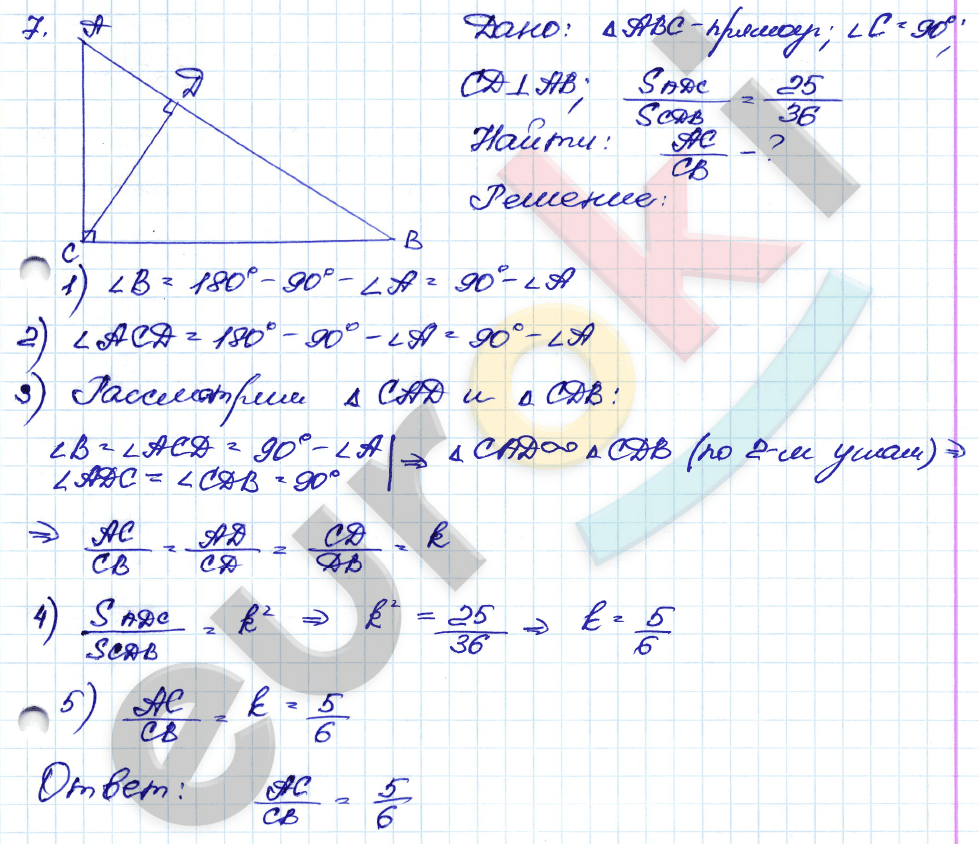 7.
A
D
C
B
Дано: △ABC - прямоуг; ∠C = 90°;
CD⊥AB; S ADC / S CDB = 25/36
Найти: AC/CB - ?
Решение:
1) ∠B = 180° - 90° - ∠A = 90° - ∠A
2) ∠ACD = 180° - 90° - ∠A = 90° - ∠A
3) Рассмотрим △CAD и △CDB:
∠B = ∠ACD = 90° - ∠A | ⇒ △CAD ∞ △CDB (по 2-м углам) ⇒
∠ADC = ∠CDB = 90°
⇒ AC/CB = AD/CD = CD/DB = k
4) S ADC / S CDB = k² ⇒ k² = 25/36 ⇒ k = 5/6
5) AC/CB = k = 5/6
Ответ: AC/CB = 5/6
euroki